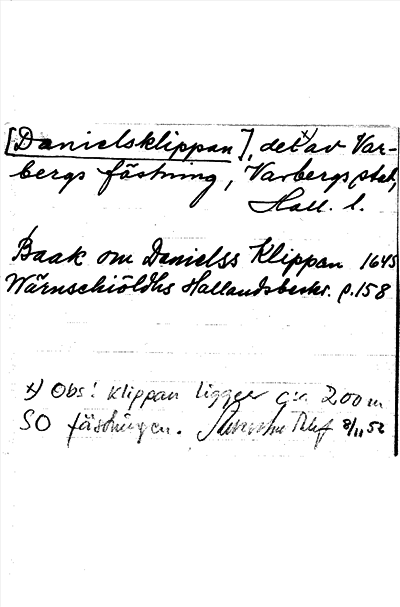 [Danielsklippan], det x) av Var-
bergs fästning, Varbergs stad,
Hall. l.
Baak om Danielss Klippan 1645
Wärnschiöldhs Hallandsbeskr. p.158
x) Obs! Klippan ligger c:a 200 m
SO fästningen. 8/11 52